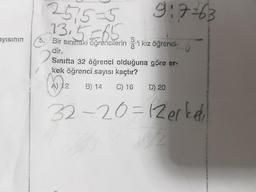 25:5=5
9:7=63
13:5=65
ayısının
5. Bir sınıftaki öğrencilerin 5/8 'i kız öğrenci-
dir.
Sınıfta 32 öğrenci olduğuna göre er-
kek öğrenci sayısı kaçtır?
A) 12 B) 14 C) 16 D) 20
32-20=12erkek